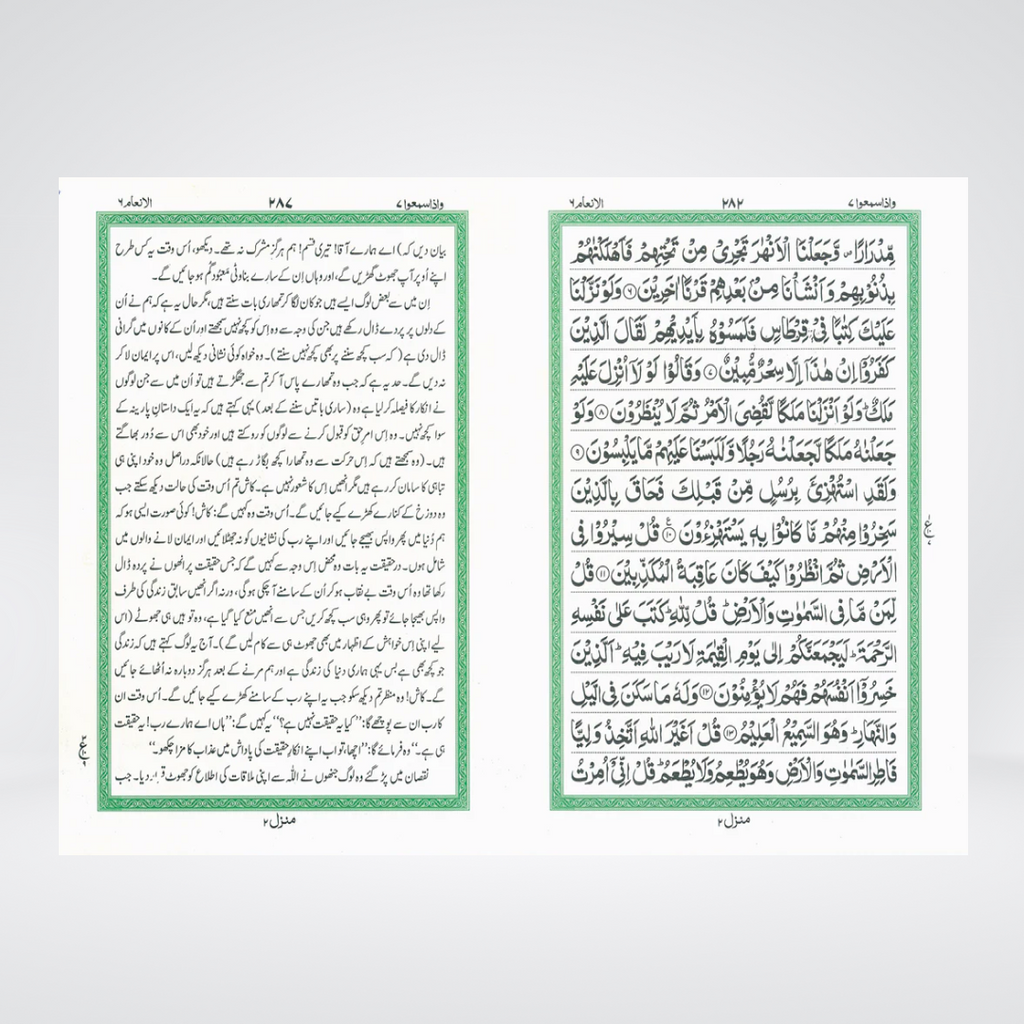 واذاسمعوا ۷ ۲۸۲ الانعام ۶
مِّدْرَارًا ۪ وَّجَعَلْنَا الْاَنْهٰرَ تَجْرِیْ مِنْ تَحْتِهِمْ فَاَهْلَكْنٰهُمْ
بِذُنُوْبِهِمْ وَاَنْشَاْنَا مِنْۢ بَعْدِهِمْ قَرْنًا اٰخَرِیْنَ ۶ وَلَوْ نَزَّلْنَا
عَلَیْكَ كِتٰبًا فِیْ قِرْطَاسٍ فَلَمَسُوْهُ بِاَیْدِیْهِمْ لَقَالَ الَّذِیْنَ
كَفَرُوْۤا اِنْ هٰذَاۤ اِلَّا سِحْرٌ مُّبِیْنٌ ۷ وَقَالُوْا لَوْ لَاۤ اُنْزِلَ عَلَیْهِ
مَلَكٌ ؕ وَلَوْ اَنْزَلْنَا مَلَكًا لَّقُضِیَ الْاَمْرُ ثُمَّ لَا یُنْظَرُوْنَ ۸ وَلَوْ
جَعَلْنٰهُ مَلَكًا لَّجَعَلْنٰهُ رَجُلًا وَّلَلَبَسْنَا عَلَیْهِمْ مَّا یَلْبِسُوْنَ ۹
وَلَقَدِ اسْتُهْزِئَ بِرُسُلٍ مِّنْ قَبْلِكَ فَحَاقَ بِالَّذِیْنَ
سَخِرُوْا مِنْهُمْ مَّا كَانُوْا بِهٖ یَسْتَهْزِءُوْنَ ۱۰ قُلْ سِیْرُوْا فِی
الْاَرْضِ ثُمَّ انْظُرُوْا كَیْفَ كَانَ عَاقِبَةُ الْمُكَذِّبِیْنَ ۱۱ قُلْ
لِّمَنْ مَّا فِی السَّمٰوٰتِ وَالْاَرْضِ ؕ قُلْ لِّلّٰهِ ؕ كَتَبَ عَلٰی نَفْسِهِ
الرَّحْمَةَ ؕ لَیَجْمَعَنَّكُمْ اِلٰی یَوْمِ الْقِیٰمَةِ لَا رَیْبَ فِیْهِ ؕ اَلَّذِیْنَ
خَسِرُوْۤا اَنْفُسَهُمْ فَهُمْ لَا یُؤْمِنُوْنَ ۱۲ وَلَهٗ مَا سَكَنَ فِی الَّیْلِ
وَالنَّهَارِ ؕ وَهُوَ السَّمِیْعُ الْعَلِیْمُ ۱۳ قُلْ اَغَیْرَ اللّٰهِ اَتَّخِذُ وَلِیًّا
فَاطِرِ السَّمٰوٰتِ وَالْاَرْضِ وَهُوَ یُطْعِمُ وَلَا یُطْعَمُ ؕ قُلْ اِنِّیْۤ اُمِرْتُ
منزل ۲
واذاسمعوا ۷ ۲۸۷ الانعام ۶
بیان دیں کہ) اے ہمارے آقا! تیری قسم! ہم ہرگز مشرک نہ تھے۔ دیکھو، اُس وقت یہ کس طرح
اپنے اُوپر آپ جھوٹ گھڑیں گے، اور وہاں اِن کے سارے بناوٹی معبُود گم ہو جائیں گے۔
اِن میں سے بعض لوگ ایسے ہیں جو کان لگا کر تمھاری بات سنتے ہیں، مگر حال یہ ہے کہ ہم نے اُن
کے دلوں پر پردے ڈال رکھے ہیں جن کی وجہ سے وہ اِس کو کچھ نہیں سمجھتے اور اُن کے کانوں میں گرانی
ڈال دی ہے ( کہ سب کچھ سننے پر بھی کچھ نہیں سنتے)۔ وہ خواہ کوئی نشانی دیکھ لیں، اس پر ایمان لا کر
نہ دیں گے۔ حد یہ ہے کہ جب وہ تمھارے پاس آ کر تم سے جھگڑتے ہیں تو اُن میں سے جن لوگوں
نے انکار کا فیصلہ کر لیا ہے وہ (ساری باتیں سننے کے بعد) یہی کہتے ہیں کہ یہ ایک داستانِ پارینہ کے
سوا کچھ نہیں۔ وہ اِس امرِ حق کو قبول کرنے سے لوگوں کو روکتے ہیں اور خود بھی اس سے دُور بھاگتے
ہیں۔ (وہ سمجھتے ہیں کہ اِس حرکت سے وہ تمھارا کچھ بگاڑ رہے ہیں) حالانکہ دراصل وہ خود اپنی ہی
تباہی کا سامان کر رہے ہیں مگر انھیں اِس کا شعور نہیں ہے۔ کاش تم اُس وقت کی حالت دیکھ سکتے جب
وہ دوزخ کے کنارے کھڑے کیے جائیں گے۔ اُس وقت وہ کہیں گے: کاش! کوئی صورت ایسی ہو کہ
ہم دُنیا میں پھر واپس بھیجے جائیں اور اپنے رب کی نشانیوں کو نہ جھٹلائیں اور ایمان لانے والوں میں
شامل ہوں۔ درحقیقت یہ بات وہ محض اِس وجہ سے کہیں گے کہ جس حقیقت پر انھوں نے پردہ ڈال
رکھا تھا وہ اُس وقت بے نقاب ہو کر اُن کے سامنے آ چکی ہو گی، ورنہ اگر انھیں سابق زندگی کی طرف
واپس بھیجا جائے تو پھر وہی سب کچھ کریں جس سے انھیں منع کیا گیا ہے، وہ تو ہیں ہی جھوٹے (اس
لیے اپنی اِس خواہش کے اظہار میں بھی جھوٹ ہی سے کام لیں گے)۔ آج یہ لوگ کہتے ہیں کہ زندگی
جو کچھ بھی ہے بس یہی ہماری دنیا کی زندگی ہے اور ہم مرنے کے بعد ہرگز دوبارہ نہ اُٹھائے جائیں
گے۔ کاش! وہ منظر تم دیکھ سکو جب یہ اپنے رب کے سامنے کھڑے کیے جائیں گے۔ اُس وقت ان
کا رب ان سے پوچھے گا: ”کیا یہ حقیقت نہیں ہے؟“ یہ کہیں گے: ”ہاں اے ہمارے رب! یہ حقیقت
ہی ہے۔“ وہ فرمائے گا: ”اچھا، تو اب اپنے انکارِ حقیقت کی پاداش میں عذاب کا مزا چکھو۔“
نقصان میں پڑ گئے وہ لوگ جنھوں نے اللہ سے اپنی ملاقات کی اطلاع کو جھوٹ قرار دیا۔ جب
منزل ۲